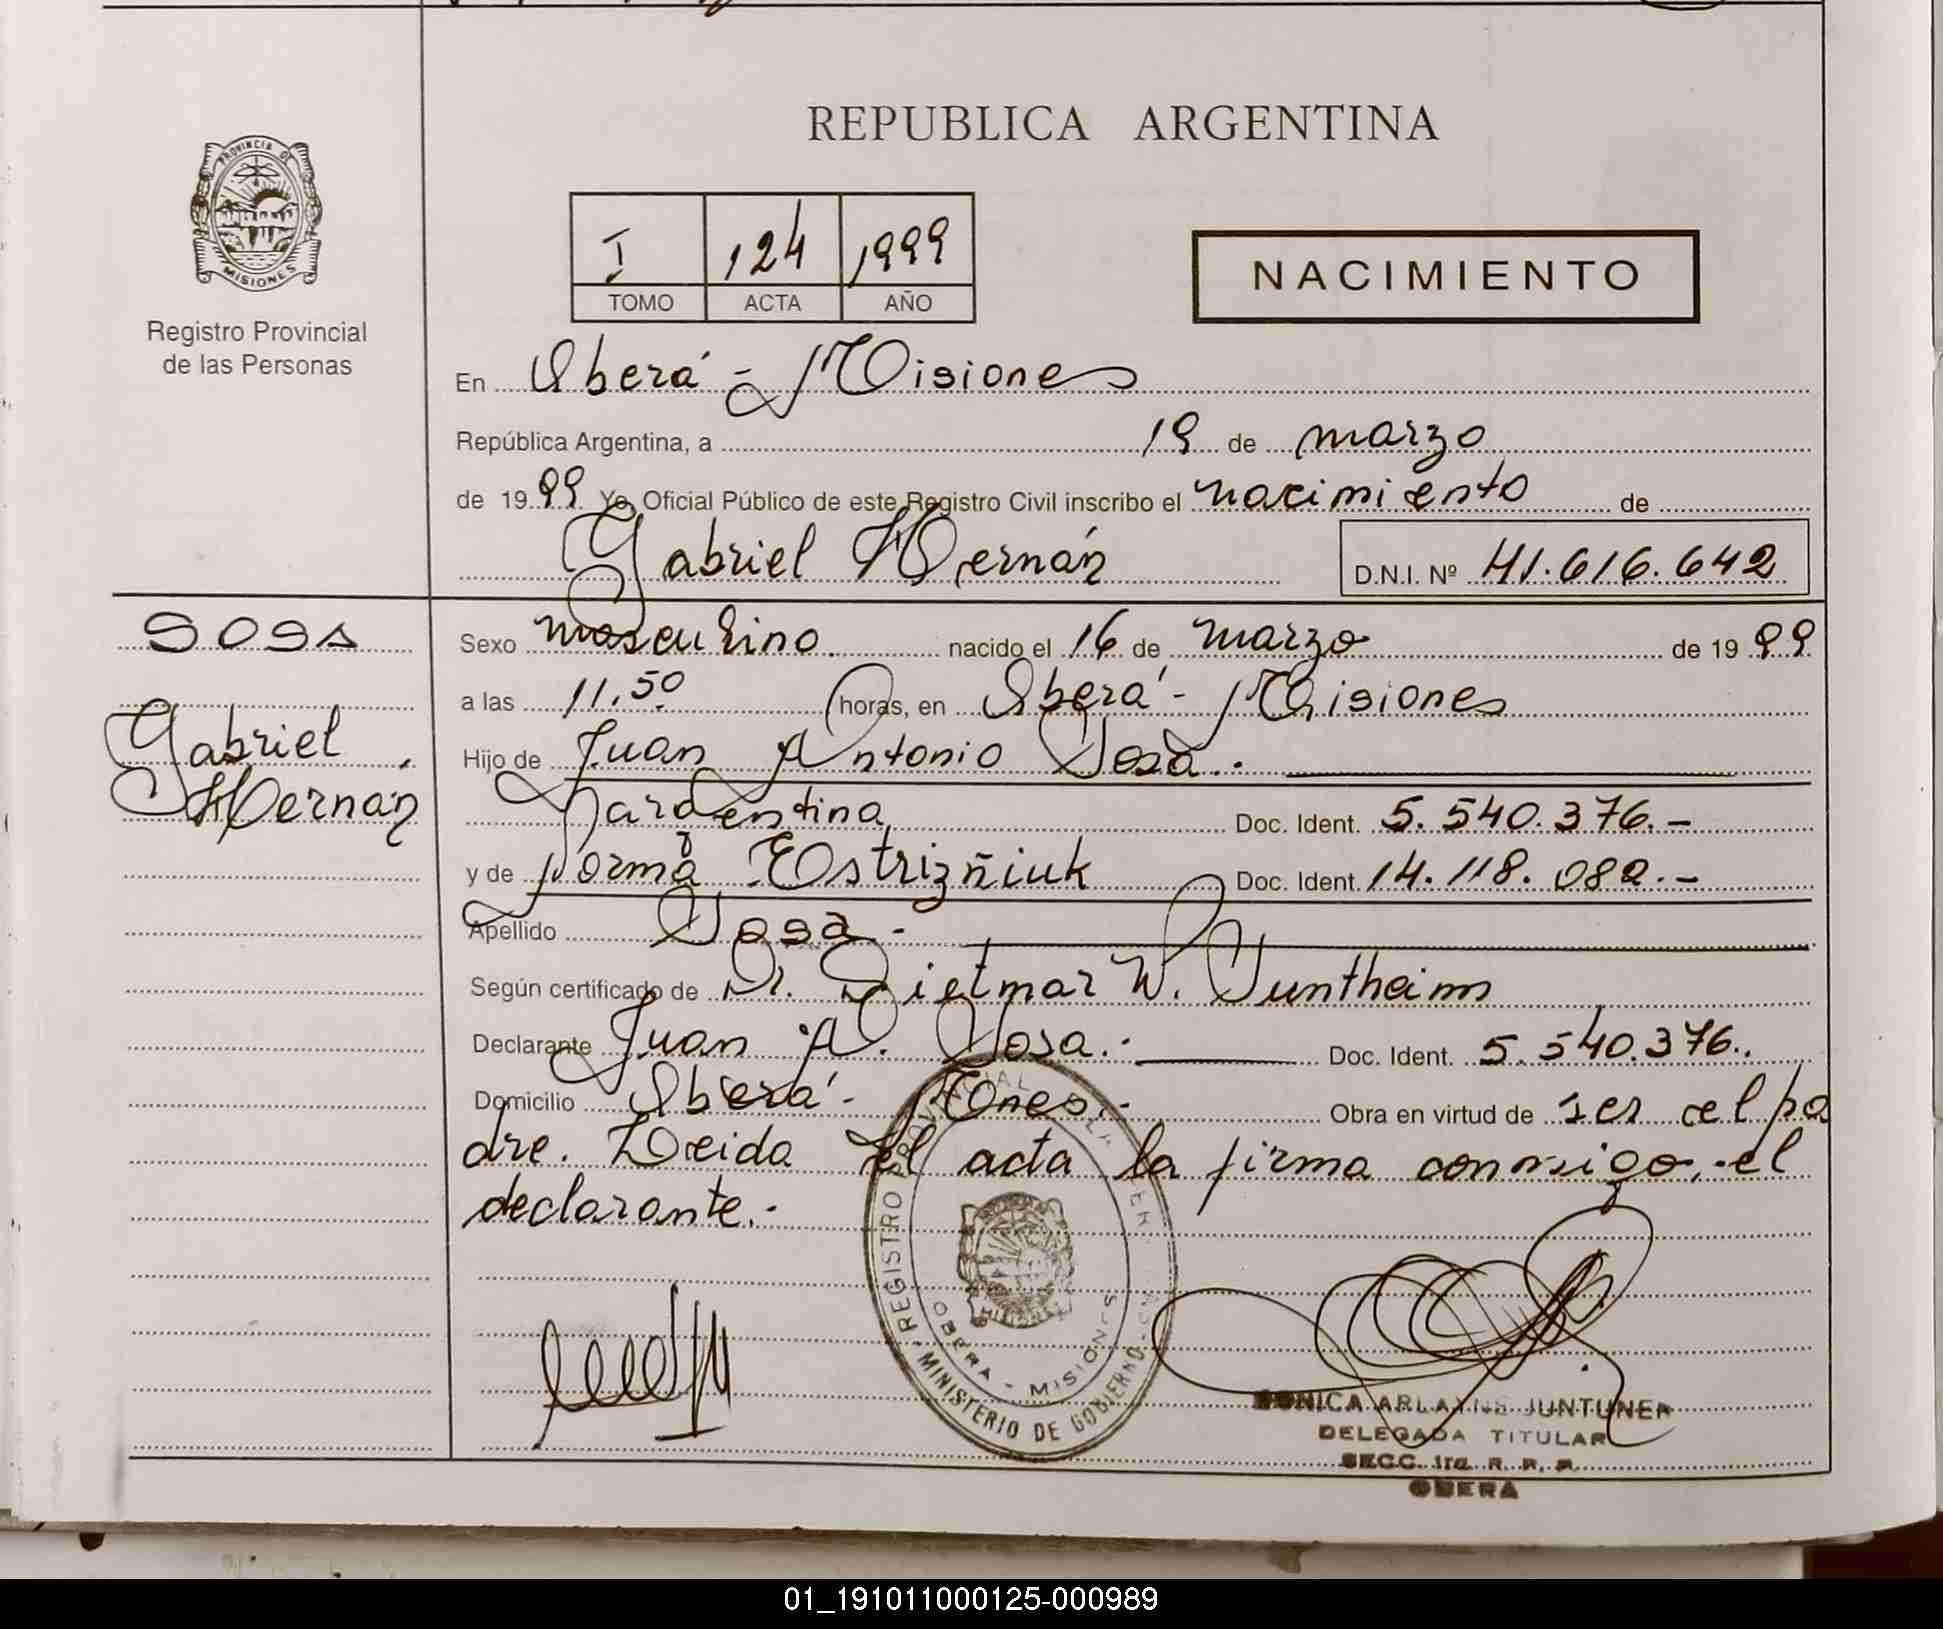 REPUBLICA ARGENTINA
PROVINCIA DE
MISIONES
Registro Provincial
de las Personas
I 124 1999
TOMO ACTA AÑO
NACIMIENTO
En Oberá - Misiones
República Argentina, a 19 de marzo
de 1999 Yo, Oficial Público de este Registro Civil inscribo el nacimiento de
Gabriel Hernán D.N.I. Nº 41.616.642
SOSA
Gabriel
Hernán
Sexo masculino. nacido el 16 de marzo de 1999
a las 11.50 horas, en Oberá - Misiones
Hijo de Juan Antonio Sosa.-
argentina Doc. Ident. 5.540.376.-
y de Norma Ostrizñiuk Doc. Ident. 14.118.082.-
Apellido Sosa.-
Según certificado de Dr. Dietmar W. Juntheim
Declarante Juan A. Sosa.- Doc. Ident. 5.540.376..
Domicilio Oberá - Mnes.- Obra en virtud de ser el pa
dre. Leida el acta la firma conmigo, el
declarante.-
REGISTRO PROVINCIAL DE LAS PERSONAS
MISIONES
OBERA - MISIONES
MINISTERIO DE GOBIERNO
MONICA ARLAYNE JUNTUNEN
DELEGADA TITULAR
SECC. 1ra. R. P. P.
OBERA
01_191011000125-000989